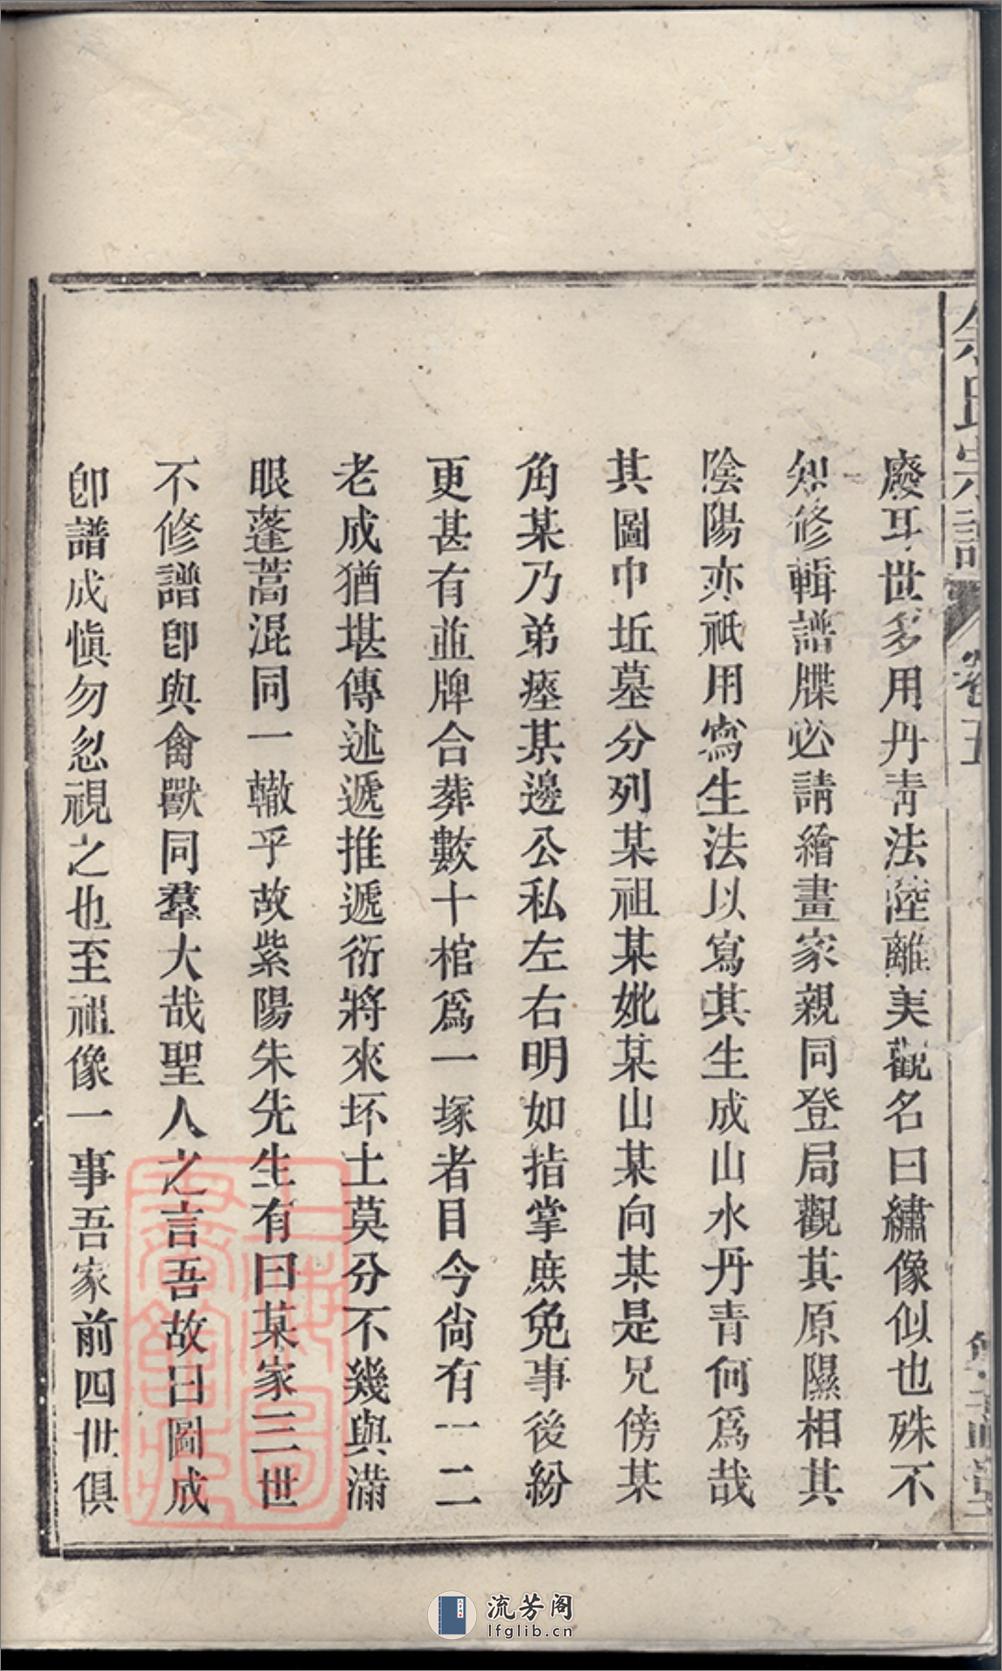 余氏宗譜
卷五
廢耳世多用丹靑法陸離美觀名曰繡像似也殊不
知修輯譜牒必請繪畫家親同登局觀其原隰相其
陰陽亦祇用寫生法以寫其生成山水丹青何爲哉
其圖巾坵墓分列某祖某妣某山某向某是兄傍某
角某乃弟瘞某邊公私左右明如指掌庶免事後紛
更甚有並牌合葬數十棺爲一塚者目今尙有一二
老成猶堪傳述遞推遞衍將來坏土莫分不幾與滿
眼蓬蒿混同一轍乎故紫陽朱先生有曰某家三世
不修譜卽與禽獸同羣大哉聖人之言吾故曰圖成
卽譜成愼勿忽視之也至祖像一事吾家前四世俱
上海圖書館藏
流芳阁
lfglib.cn